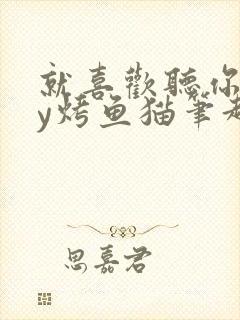 就喜歡聽你
y烤鱼猫筆趣
思嘉君